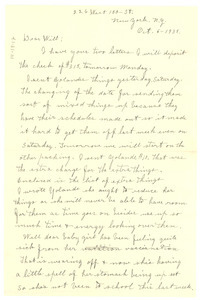 226 West 150 - St.
New York, N.Y.
Oct. 6 - 1935
Dear Will:
I have your two letters. I will deposit
the check of $15. tomorrow Monday.
I sent Yolande things yesterday Saturday.
The changing of the date for sending them
sort of mixed things up because they
have their schedules made out so it made
it hard to get them off last week even on
Saturday. Tomorrow we will start on the
other packing. I sent Yolande $10. that was
the extra charge for the extra things.
Enclosed is the list of extra things
I wrote Yolande she ought to reduce her
things as she will never be able to have room
for them as time goes on besides it uses up so
much time & energy looking over them.
Well dear baby girl has been feeling quite
sick from her vaccination
that is wearing off & now she's having
a little spell of her stomach being upset
so she's not been to school this last week.